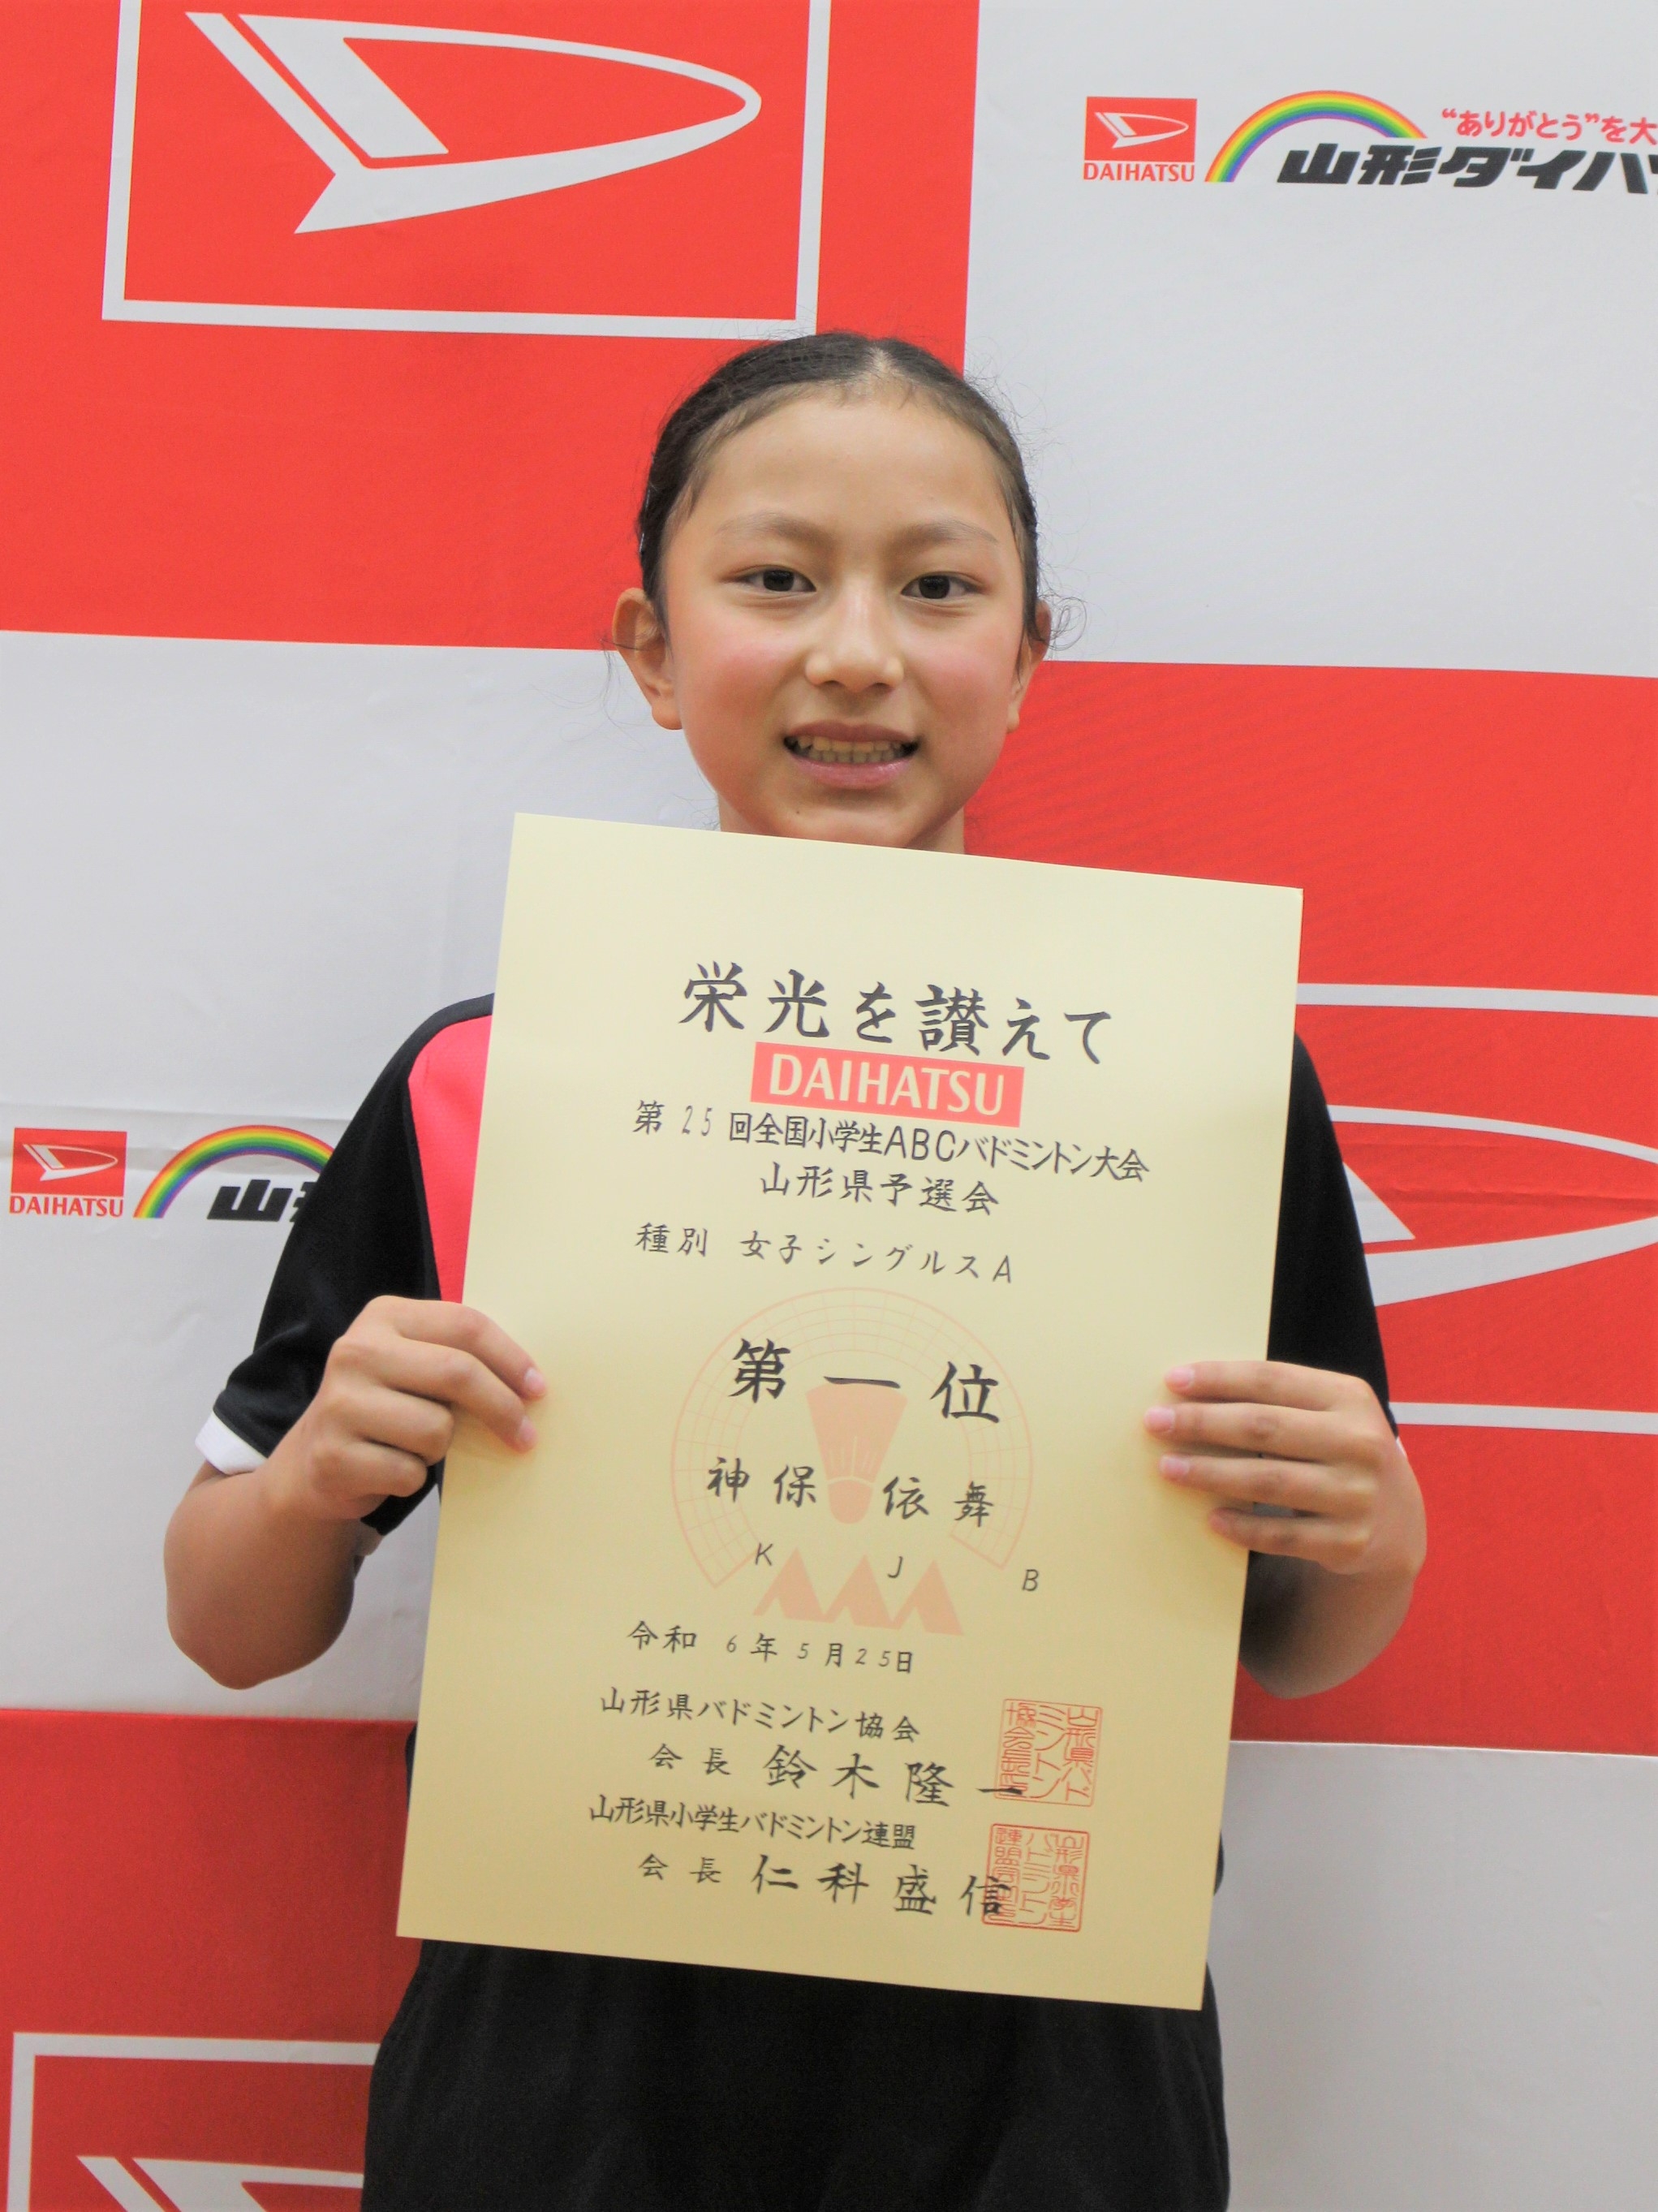 DAIHATSU
“ありがとう”を大
山形ダイハ
栄光を讃えて
DAIHATSU
第25回全国小学生ABCバドミントン大会
山形県予選会
種別 女子シングルスA
第一位
神保 依舞
K J B
令和 6年 5月25日
山形県バドミントン協会
会長 鈴木隆一
山形県バドミントン協会長印
山形県小学生バドミントン連盟
会長 仁科盛信
DAIHATSU
山